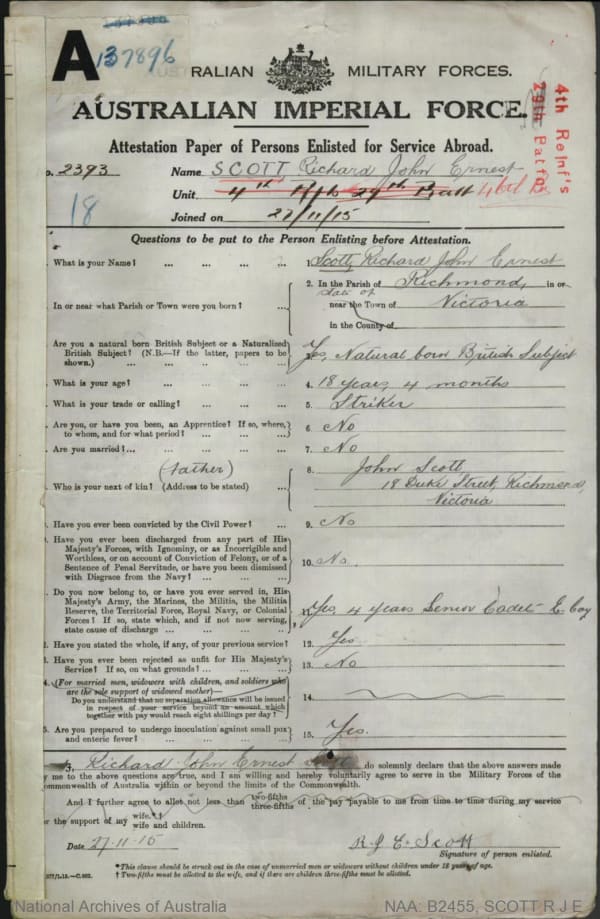 A
137896
RALIAN MILITARY FORCES.
AUSTRALIAN IMPERIAL FORCE.
4th Reinf's
29th Batt'n
Attestation Paper of Persons Enlisted for Service Abroad.
o. 2393 Name SCOTT Richard John Ernest
Unit 4th 29th Batt
18
Joined on 27/11/15
Questions to be put to the Person Enlisting before Attestation.
. What is your Name? ... ... ... ... 1. Scott, Richard John Ernest
In or near what Parish or Town were you born? ...
2. In the Parish of Richmond, in or
state of
near the Town of Victoria
in the County of
Are you a natural born British Subject or a Naturalized
British Subject? (N.B.—If the latter, papers to be
shown.) ... ... ... ...
Yes, Natural born British Subject
. What is your age? ... ... ... ... 4. 18 years, 4 months
. What is your trade or calling? ... ... ... 5. Striker
. Are you, or have you been, an Apprentice? If so, where,
to whom, and for what period? ... ...
6. No
. Are you married?... ... ... ... 7. No
(father)
. Who is your next of kin? (Address to be stated) ...
8. John Scott
18 Duke Street, Richmond,
Victoria
. Have you ever been convicted by the Civil Power? ... 9. No
. Have you ever been discharged from any part of His
Majesty's Forces, with Ignominy, or as Incorrigible and
Worthless, or on account of Conviction of Felony, or of a
Sentence of Penal Servitude, or have you been dismissed
with Disgrace from the Navy? ... ... ...
10. No.
. Do you now belong to, or have you ever served in, His
Majesty's Army, the Marines, the Militia, the Militia
Reserve, the Territorial Force, Royal Navy, or Colonial
Forces? If so, state which, and if not now serving,
state cause of discharge ... ... ...
11. Yes, 4 years Senior Cadets E. Coy
2. Have you stated the whole, if any, of your previous service? 12. Yes.
3. Have you ever been rejected as unfit for His Majesty's
Service? If so, on what grounds? ... ...
13. No
4. (For married men, widowers with children, and soldiers who
are the sole support of widowed mother)—
Do you understand that no separation allowance will be issued
in respect of your service beyond an amount which
together with pay would reach eight shillings per day?
14.
5. Are you prepared to undergo inoculation against small pox
and enteric fever? ... ... ...
15. Yes.
I, Richard John Ernest Scott do solemnly declare that the above answers made
y me to the above questions are true, and I am willing and hereby voluntarily agree to serve in the Military Forces of the
ommonwealth of Australia within or beyond the limits of the Commonwealth.
And I further agree to allot not less than two-fifths
three-fifths of the pay payable to me from time to time during my service
or the support of my wife. †
wife and children.
Date 27-11-15
R. J. E. Scott
Signature of person enlisted.
*This clause should be struck out in the case of unmarried men or widowers without children under 18 years of age.
† Two-fifths must be allotted to the wife, and if there are children three-fifths must be allotted.
National Archives of Australia
NAA: B2455, SCOTT R J E